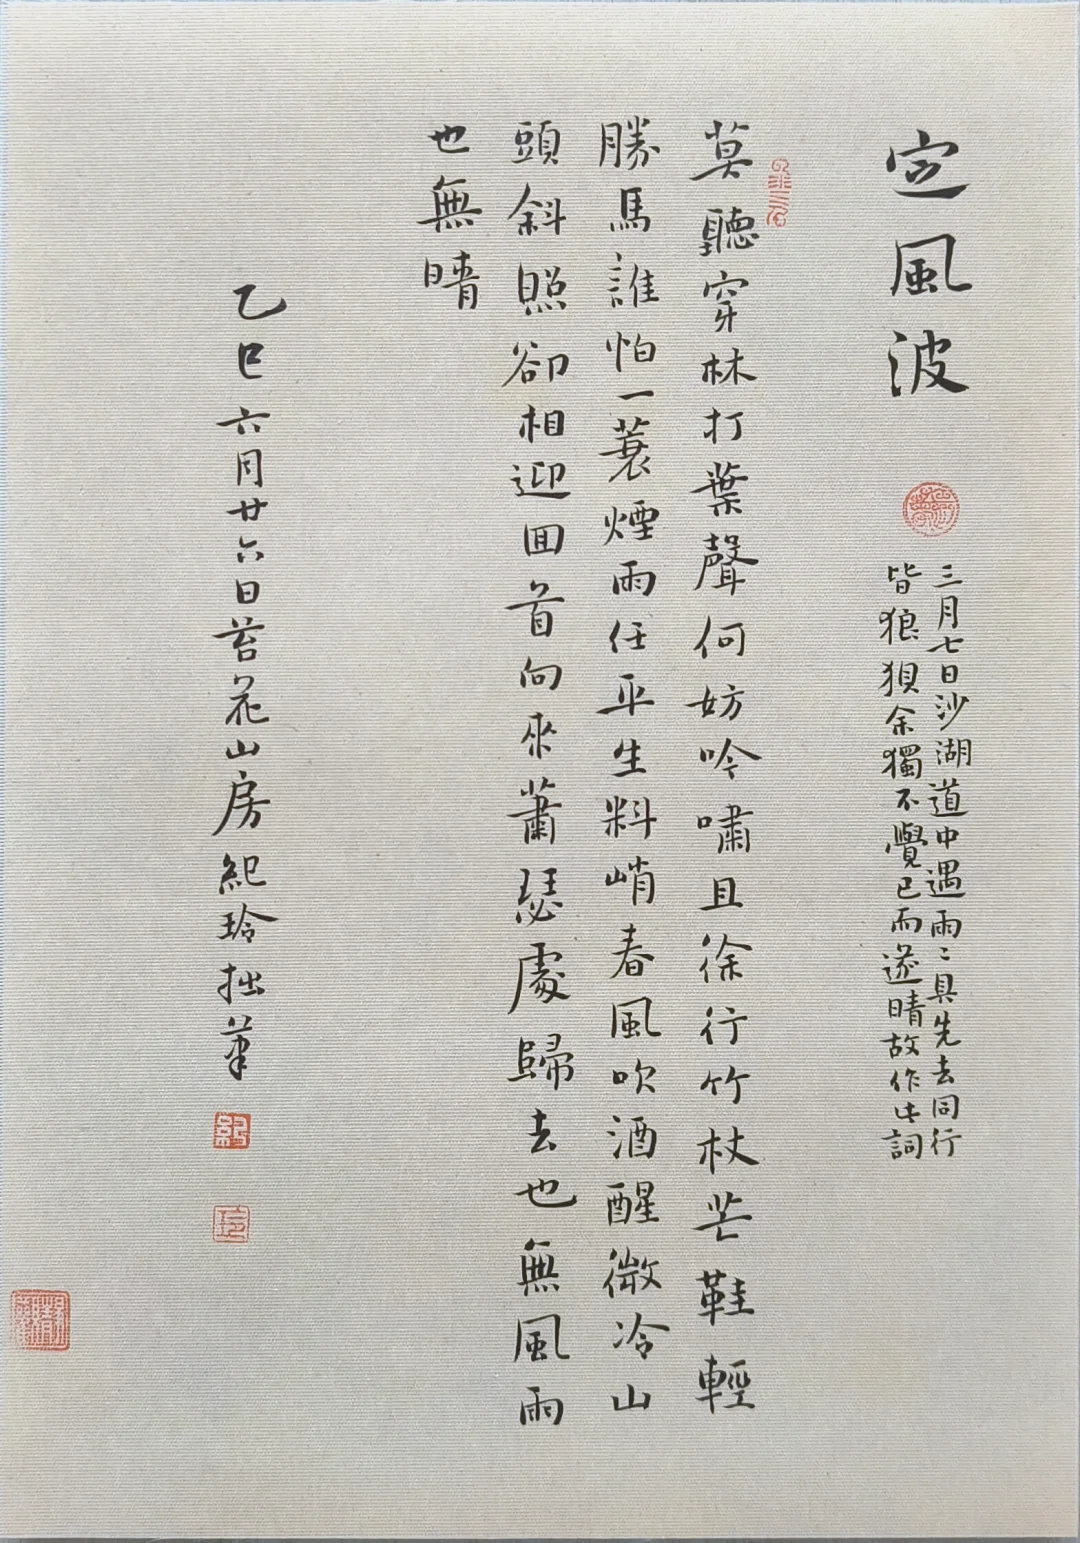 定風波
三月七日沙湖道中遇雨〻具先去同行
皆狼狽余獨不覺已而遂晴故作此詞
莫聽穿林打葉聲何妨吟嘯且徐行竹杖芒鞋輕
勝馬誰怕一蓑煙雨任平生料峭春風吹酒醒微冷山
頭斜照卻相迎回首向來蕭瑟處歸去也無風雨
也無晴
乙巳六月廿六日苔花山房紀玲拙筆
紀
玲